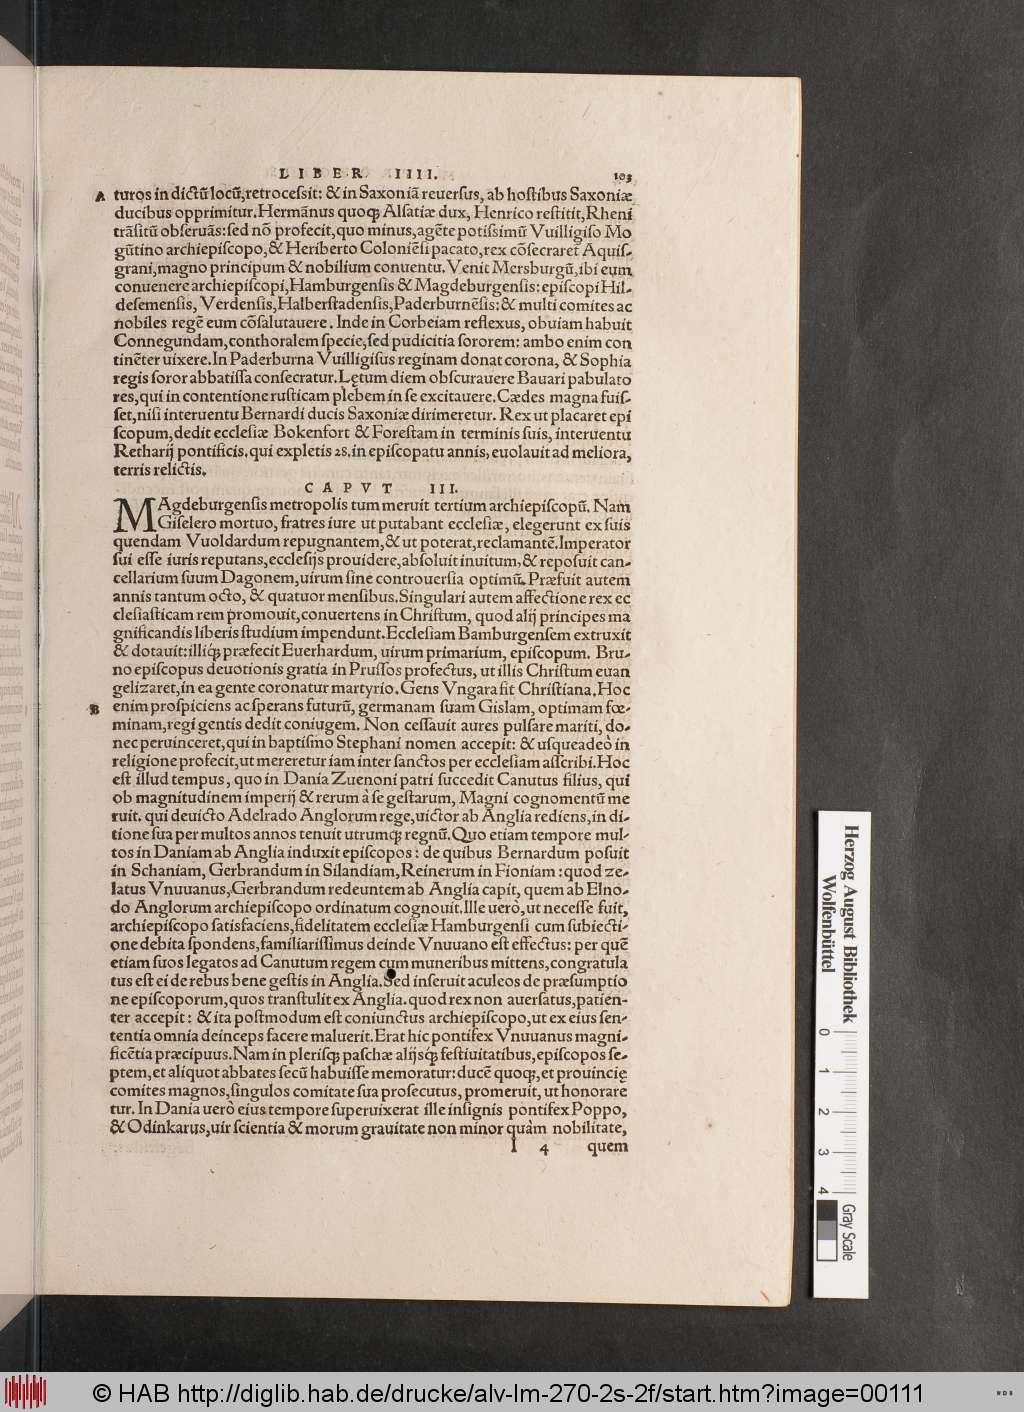 LIBER IIII. 103
A turos in dictū locū, retrocessit: & in Saxoniā reuersus, ab hostibus Saxoniæ
ducibus opprimitur. Hermānus quoq; Alsatiæ dux, Henrico restitit, Rheni
trāsitū obseruās: sed nō profecit, quo minus, agēte potissimū Vuilligiso Mo
gūtino archiepiscopo, & Heriberto Coloniēsi pacato, rex cōsecraret̃ Aquis-
grani, magno principum & nobilium conuentu. Venit Mersburgū, ibi eum
conuenere archiepiscopi, Hamburgensis & Magdeburgensis: episcopi Hil-
desemensis, Verdensis, Halberstadensis, Paderburnēsis: & multi comites ac
nobiles regē eum cōsalutauere. Inde in Corbeiam reflexus, obuiam habuit
Connegundam, conthoralem specie, sed pudicitia sororem: ambo enim con
tinēter uixere. In Paderburna Vuilligisus reginam donat corona, & Sophia
regis soror abbatissa consecratur. Lętum diem obscurauere Bauari pabulato
res, qui in contentione rusticam plebem in se excitauere. Cædes magna fuis-
set, nisi interuentu Bernardi ducis Saxoniæ dirimeretur. Rex ut placaret epi
scopum, dedit ecclesiæ Bokenfort & Forestam in terminis suis, interuentu
Retharij pontificis. qui expletis 28. in episcopatu annis, euolauit ad meliora,
terris relictis.
CAPVT III.
MAgdeburgensis metropolis tum meruit tertium archiepiscopū. Nam
Giselero mortuo, fratres iure ut putabant ecclesiæ, elegerunt ex suis
quendam Vuoldardum repugnantem, & ut poterat, reclamantē. Imperator
sui esse iuris reputans, ecclesijs prouidere, absoluit inuitum, & reposuit can-
cellarium suum Dagonem, uirum sine controuersia optimū. Præfuit autem
annis tantum octo, & quatuor mensibus. Singulari autem affectione rex ec
clesiasticam rem promouit, conuertens in Christum, quod alij principes ma
gnificandis liberis studium impendunt. Ecclesiam Bamburgensem extruxit
& dotauit: illiq́; præfecit Euerhardum, uirum primarium, episcopum. Bru-
no episcopus deuotionis gratia in Prussos profectus, ut illis Christum euan
gelizaret, in ea gente coronatur martyrio. Gens Vngara fit Christiana. Hoc
B enim prospiciens ac sperans futurū, germanam suam Gislam, optimam fœ-
minam, regi gentis dedit coniugem. Non cessauit aures pulsare mariti, do-
nec peruinceret, qui in baptismo Stephani nomen accepit: & usqueadeò in
religione profecit, ut mereretur iam inter sanctos per ecclesiam ascribi. Hoc
est illud tempus, quo in Dania Zuenoni patri succedit Canutus filius, qui
ob magnitudinem imperij & rerum à se gestarum, Magni cognomentū me
ruit. qui deuicto Adelrado Anglorum rege, uictor ab Anglia rediens, in di-
tione sua per multos annos tenuit utrumq; regnū. Quo etiam tempore mul-
tos in Daniam ab Anglia induxit episcopos: de quibus Bernardum posuit
in Schaniam, Gerbrandum in Silandiam, Reinerum in Fioniam: quod ze-
latus Vnuuanus, Gerbrandum redeuntem ab Anglia capit, quem ab Elno-
do Anglorum archiepiscopo ordinatum cognouit. Ille uerò, ut necesse fuit,
archiepiscopo satisfaciens, fidelitatem ecclesiæ Hamburgensi cum subiecti-
one debita spondens, familiarissimus deinde Vnuuano est effectus: per quē
etiam suos legatos ad Canutum regem cum muneribus mittens, congratula
tus est ei de rebus bene gestis in Anglia. Sed inseruit aculeos de præsumptio
ne episcoporum, quos transtulit ex Anglia. quod rex non auersatus, patien-
ter accepit: & ita postmodum est coniunctus archiepiscopo, ut ex eius sen-
tentia omnia deinceps facere maluerit. Erat hic pontifex Vnuuanus magni-
ficētia præcipuus. Nam in plerisq; paschæ alijsq́; festiuitatibus, episcopos se-
ptem, et aliquot abbates secū habuisse memoratur: ducē quoq;, et prouincię
comites magnos, singulos comitate sua prosecutus, promeruit, ut honorare
tur. In Dania uerò eius tempore superuixerat ille insignis pontifex Poppo,
& Odinkarus, uir scientia & morum grauitate non minor quàm nobilitate,
I 4 quem
Herzog August Bibliothek
Wolfenbüttel
0 1 2 3 4
Gray Scale
© HAB http://diglib.hab.de/drucke/alv-lm-270-2s-2f/start.htm?image=00111
WDB